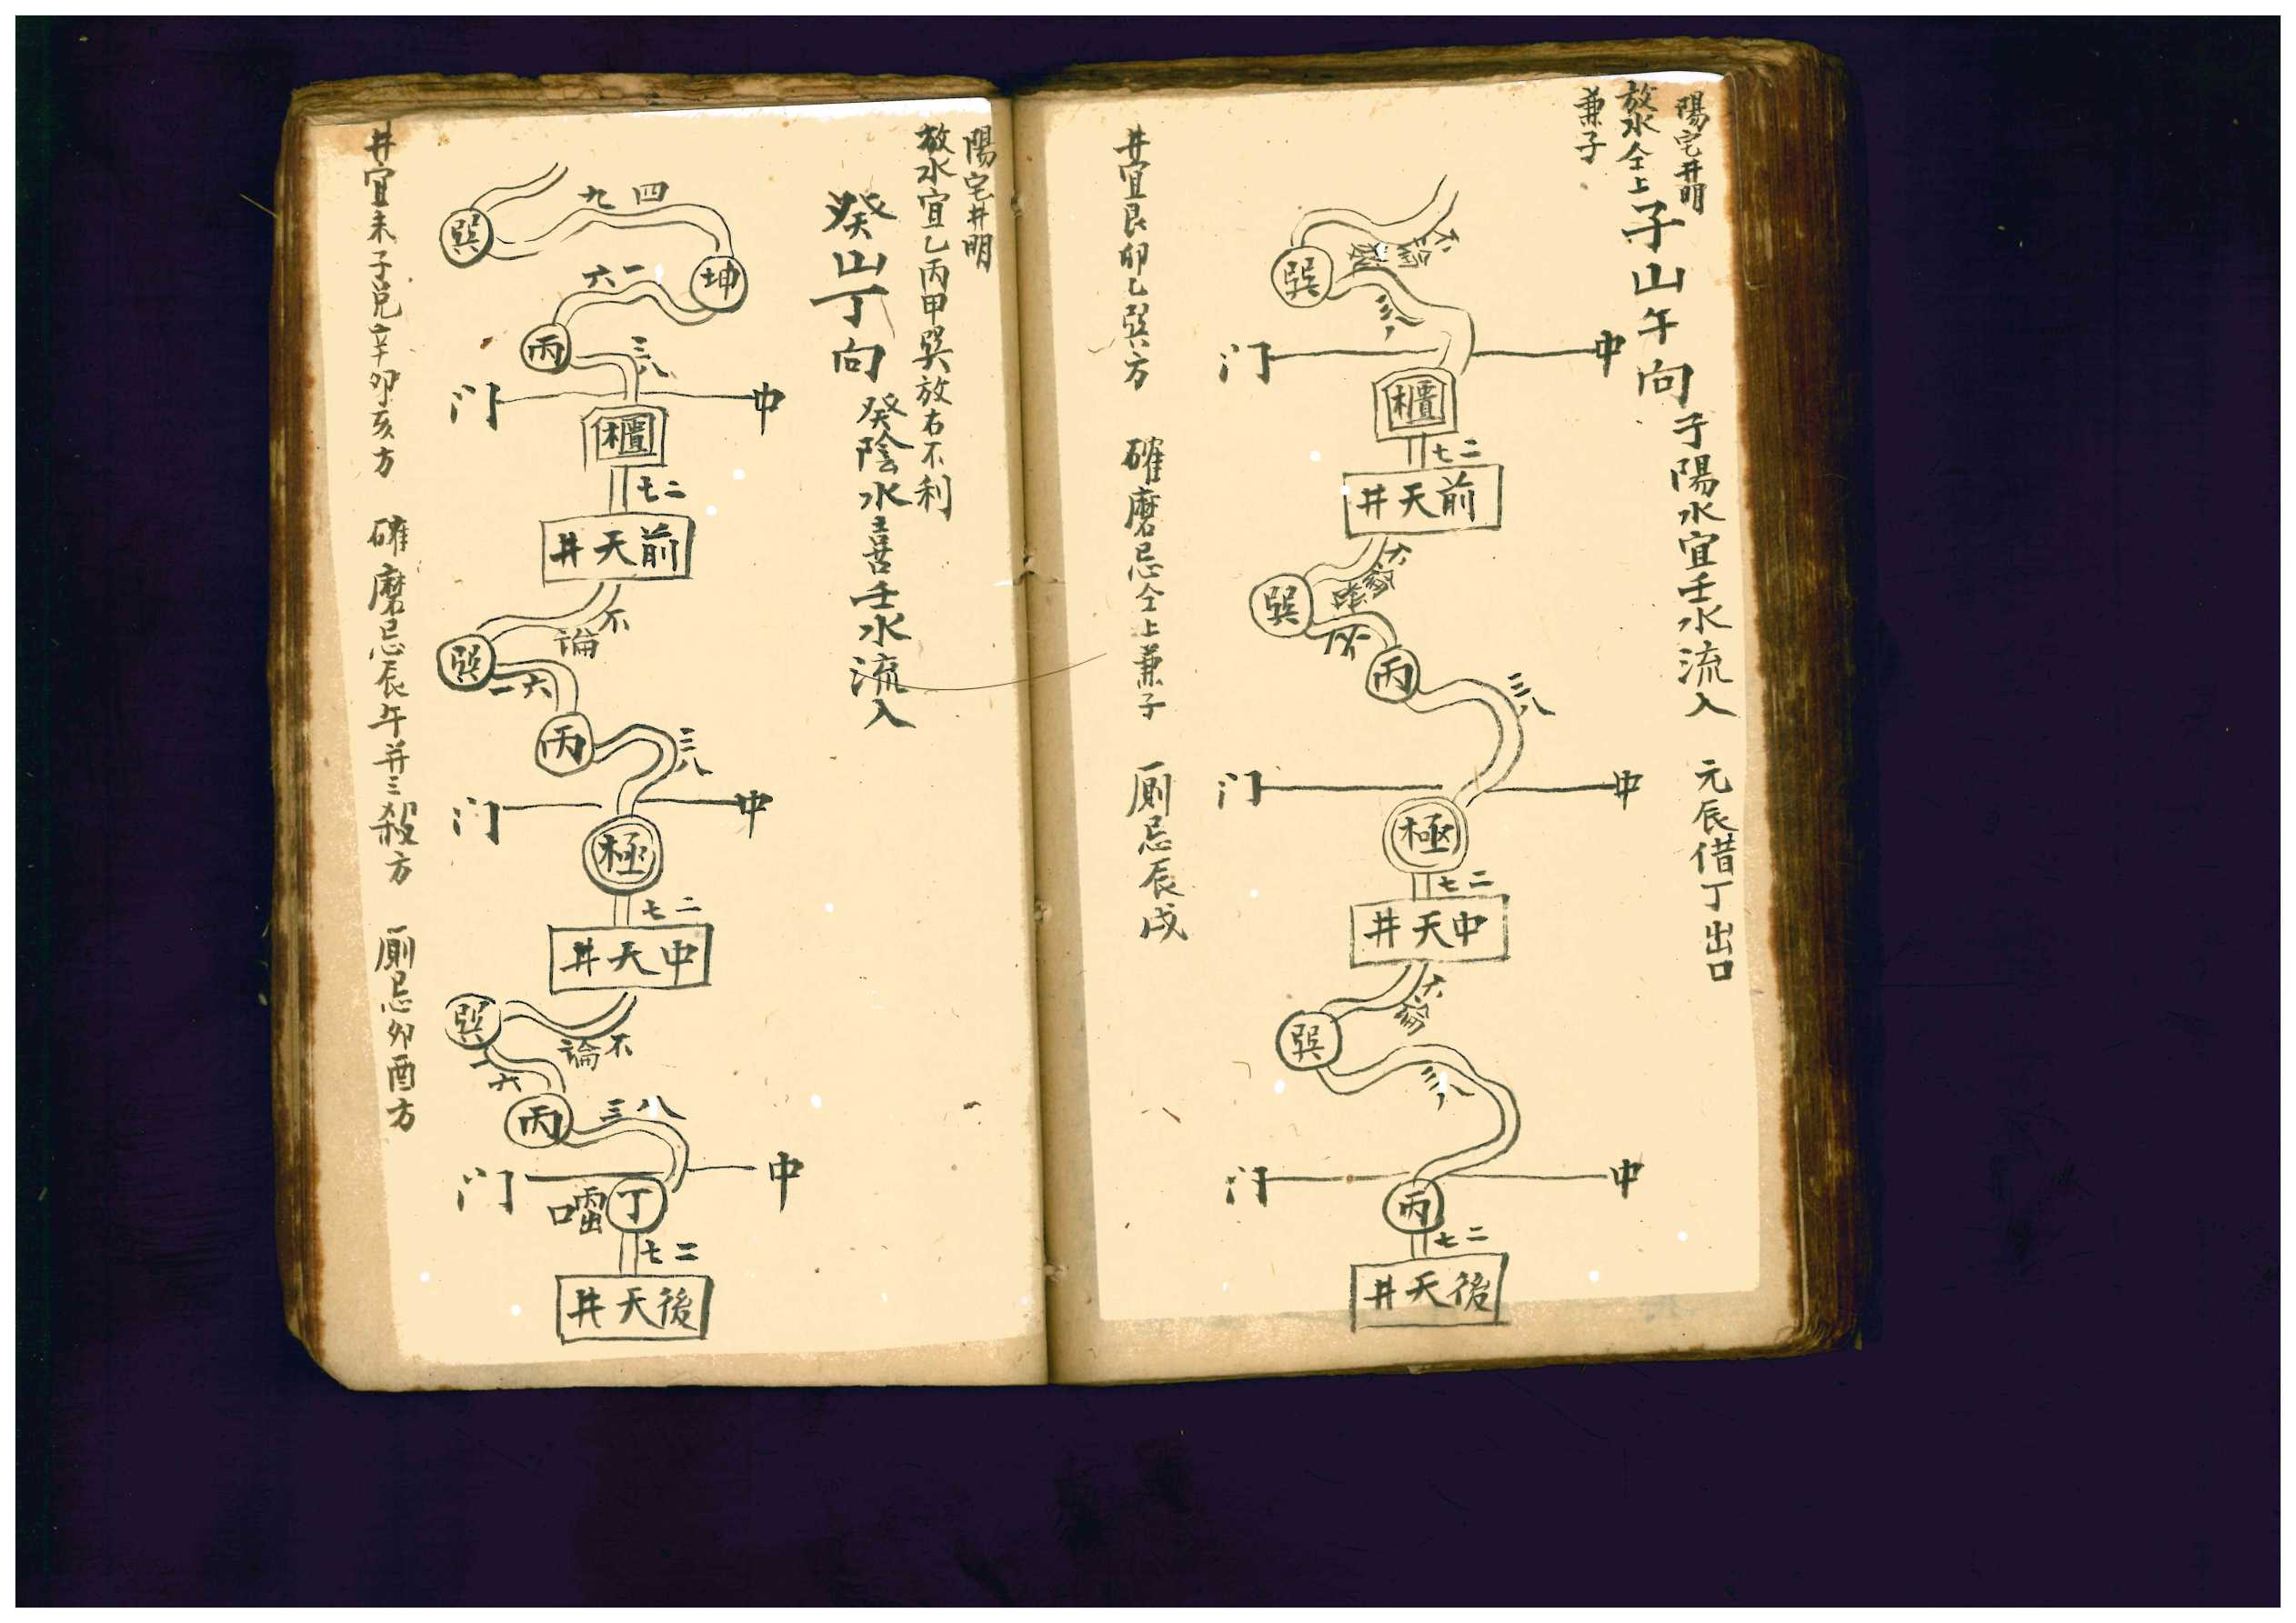 陽宅井明
放水仝上
兼子
子山午向
子陽水宜壬水流入 元辰借丁出口
不論
巽
三八
门 中
櫃
七二
井天前
巽
丙
三八
门 中
極
七二
井天中
巽
三八
门 中
丙
七二
井天後
井宜艮卯乙巽方 確磨忌仝上兼子 厠忌辰戌
陽宅井明
放水宜乙丙甲巽放右不利
癸山丁向
癸陰水喜壬水流入
九四
巽
坤
六一
丙
三八
门 中
櫃
七二
井天前
不論
巽
一六
丙
三八
门 中
極
七二
井天中
不論
巽
一六
丙
三八
门 中
丁
七二
井天後
井宜未子兑辛卯亥方 確磨忌辰午并三殺方 厠忌卯酉方